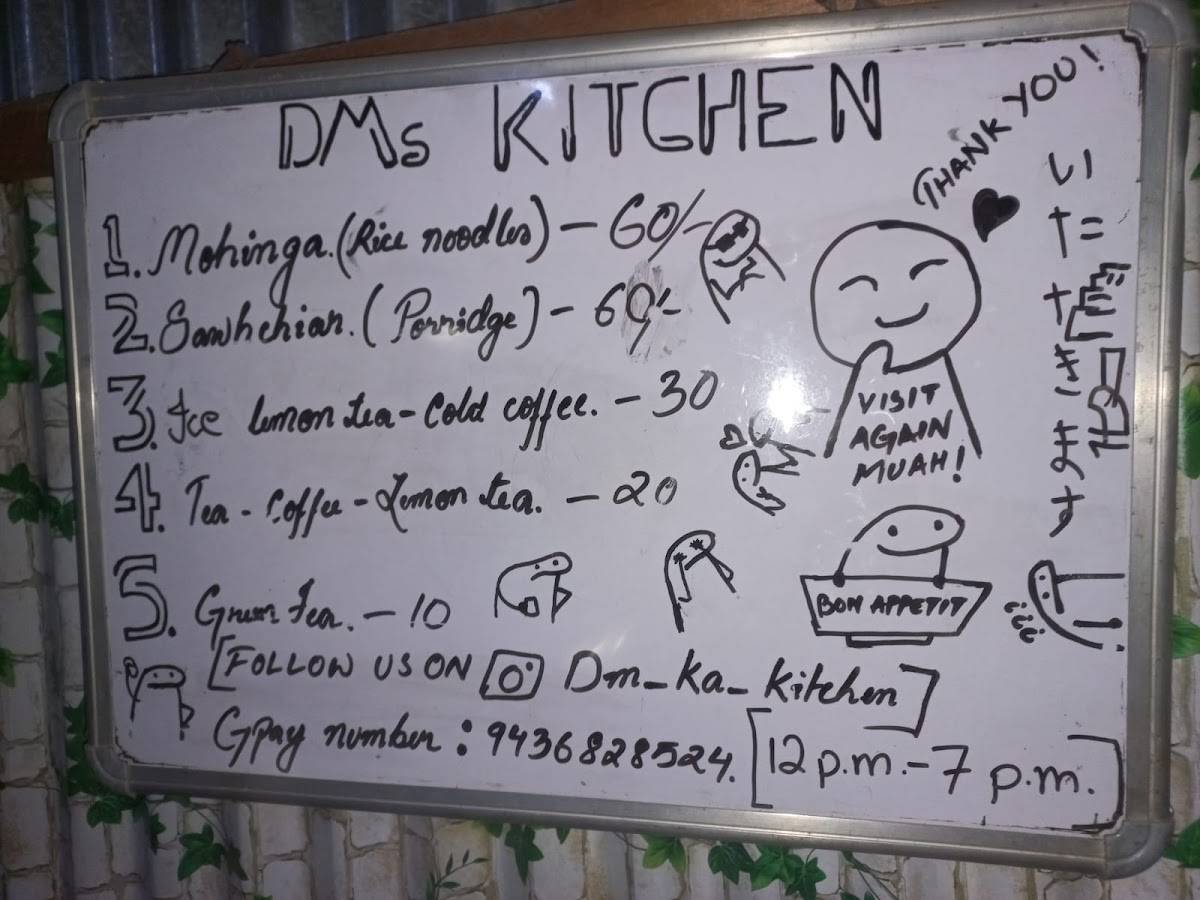 DMs KITCHEN
THANK YOU!
1. Mohinga.(Rice noodles) - 60/-
2. Sawhchiar. (Porridge) - 60/-
3. Ice lemon tea - Cold coffee. - 30
4. Tea - Coffee - Lemon tea. - 20
5. Green tea. - 10
VISIT
AGAIN
MUAH!
BON APPETIT
いただきます
[FOLLOW US ON Dm_ka_kitchen]
Gpay number : 9436828524. [12 p.m. - 7 p.m.]